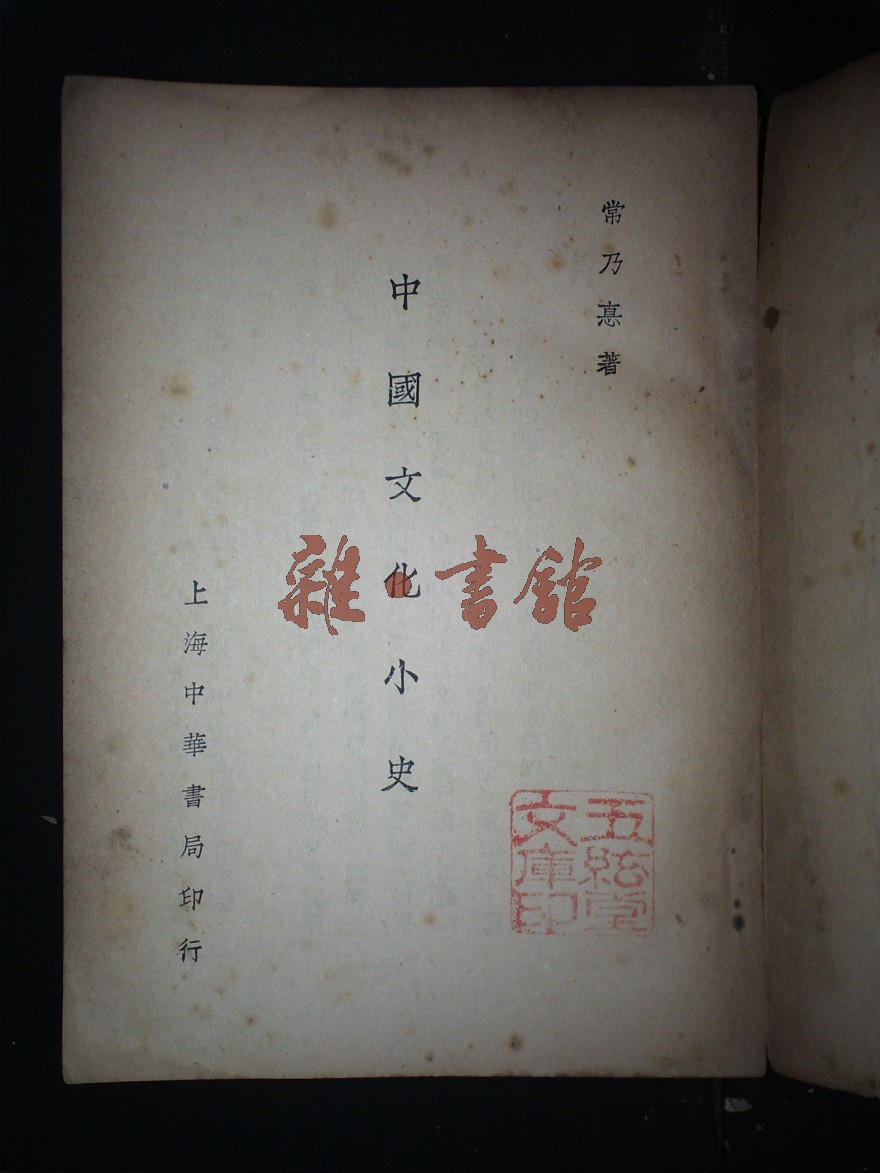 常乃惪著
中國文化小史
上海中華書局印行
雜·書館
五絃
文庫印